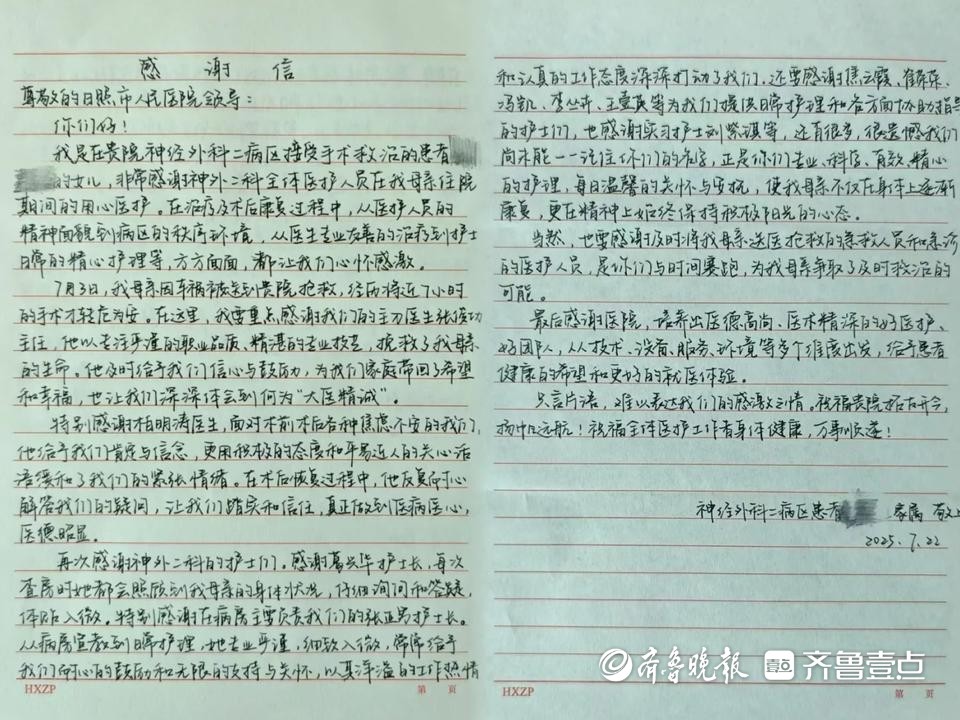 感谢信
尊敬的日照市人民医院领导：
你们好！
我是在贵院神经外科二病区接受手术救治的患者
的女儿，非常感谢神外二科全体医护人员在我母亲住院
期间的用心医护。在治疗及术后康复过程中，从医护人员的
精神面貌到病区的秩序环境，从医生专业友善的治疗到护士
日常的精心护理等，方方面面，都让我们心怀感激。
7月3日，我母亲因车祸被送到贵院抢救，经历将近7小时
的手术才转危为安。在这里，我要重点感谢我们的主刀医生张
主任，他以专注严谨的职业品质、精湛的专业技艺，抢救了我母亲
的生命。他及时给予我们信心与鼓励，为我们家庭带回了希望
和幸福，也让我们深深体会到何为“大医精诚”。
特别感谢柏明涛医生，面对术前术后各种焦虑不安的我们，
他给予我们肯定与信念，更用积极的态度和平易近人的关心话
语缓和了我们的紧张情绪。在术后恢复过程中，他反复耐心
解答我们的疑问，让我们踏实和信任，真正做到医病医心，
医德昭显。
再次感谢神外二科的护士们。感谢葛云华护士长，每次
查房时她都会照顾到我母亲的身体状况，仔细询问和答疑，
体贴入微。特别感谢在病房主要负责我们的张正男护士长。
从病房宣教到日常护理，她专业严谨，细致入微，常常给予
我们耐心的鼓励和无限的支持与关怀，以其洋溢的工作热情
HXZP 第 页
和认真的工作态度深深打动了我们。还要感谢焦云霞、崔
冯凯、李 、王 英等为我们提供日常护理和各方面协助指导
的护士们，也感谢实习护士刘紫琪等，还有很多，很遗憾我们
尚未能一一记住你们的名字，正是你们专业、科学、有效、精心
的护理，每日温馨的关怀与安抚，使我母亲不仅在身体上逐渐
康复，更在精神上始终保持积极阳光的心态。
当然，也要感谢及时将我母亲送医抢救的急救人员和急诊
的医护人员，是你们与时间赛跑，为我母亲争取了及时救治的
可能。
最后感谢医院，培养出医德高尚、医术精深的好医护、
好团队，从技术、设备、服务、环境等多个维度出发，给予患者
健康的希望和更好的就医体验。
只言片语，难以表达我们的感激之情。祝福贵院拓在开今，
扬帆远航！祝福全体医护工作者身体健康，万事顺遂！
神经外科二病区患者 家属 敬上
2025.7.22
HXZP 第 页
齐鲁晚报 齐鲁壹点